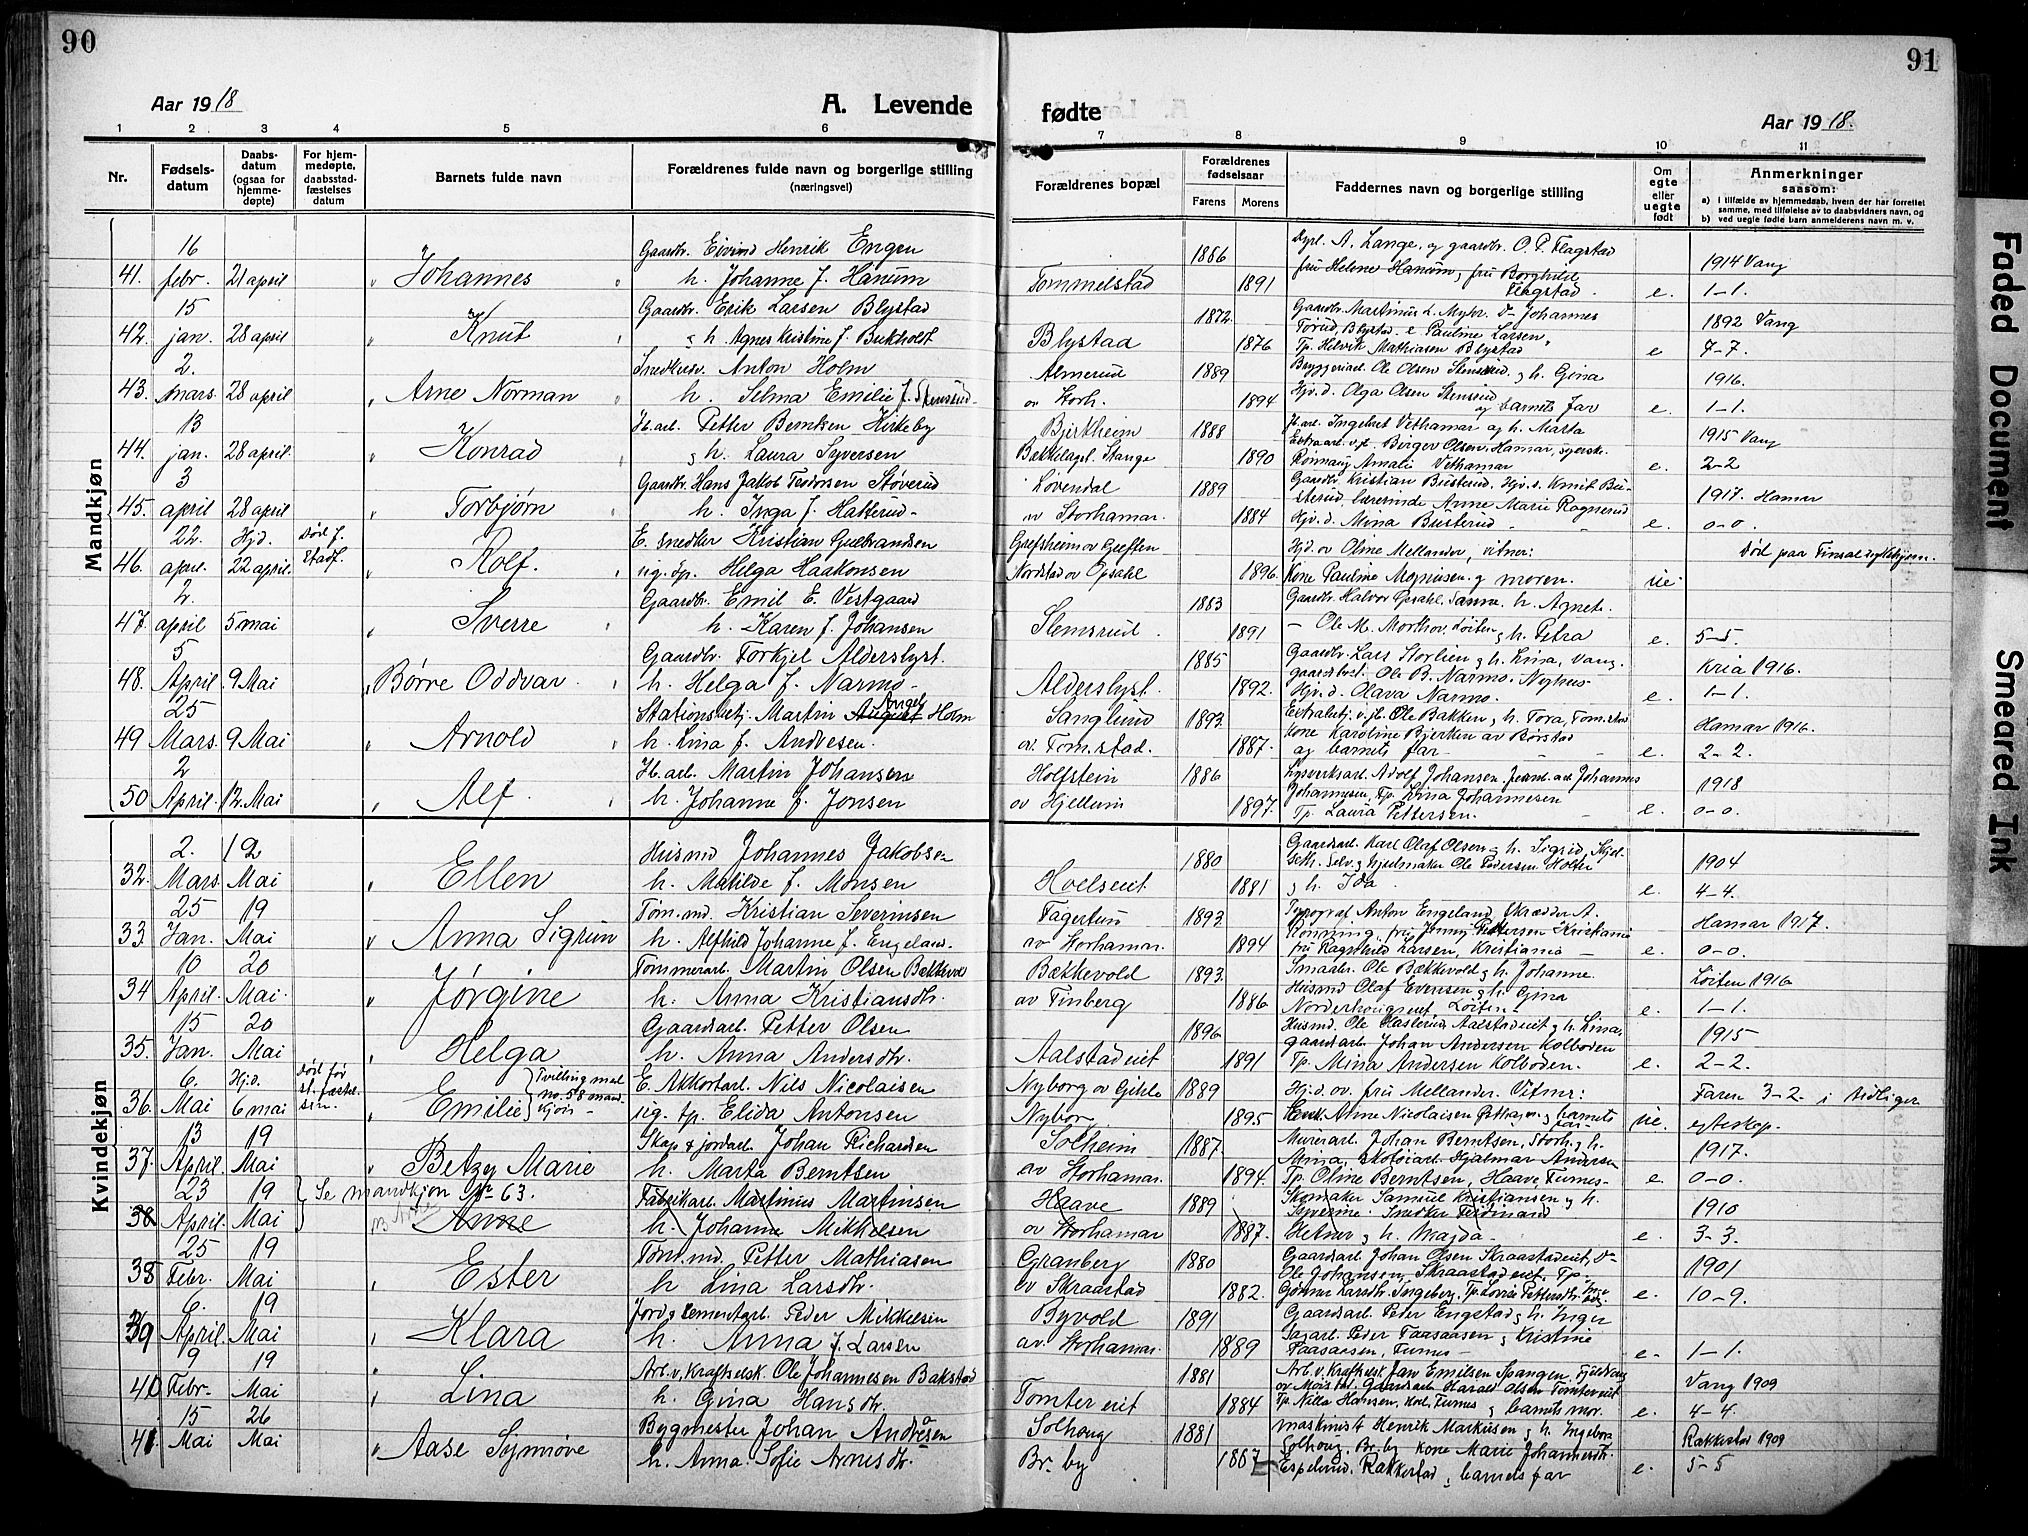 90
Aar 1918
A. Levende
1 2 3 4 5 6
Nr.
Fødsels-
datum
Daabs-
datum
(ogsaa for
hjemme-
døpte)
For hjem-
medøpte,
daabsstad-
fæstelses
datum
Barnets fulde navn
Forældrenes fulde navn og borgerlige stilling
(næringsvei)
Mandkjøn
16 Gaardbr. Eivind Henrik Engen
41. febr. 21 april " Johannes " h. Johanne f. Hanum
15 Gaardbr. Erik Larsen Blystad
42. jan. 28 april " Knut " h. Agnes Kristine f. Bukholt
2. Snedkersv. Anton Holm
43. mars 28 april " Arne Norman " h. Selma Emilie f. Stensrud
13 Jb.arb. Petter Berntsen Kirkeby
44. jan. 28 april " Konrad " h. Laura Syversen
3 Gaardbr. Hans Jakob Støverud
45. april 28 april " Torbjørn " h. Inga f. Hatterud
22. Hjd. Død f. E. snedker Kristian Gulbrandsen
46. april. 22 april. Stadf. " Rolf. ug. tp. Helga Haakonsen
2. Gaardbr. Emil E. Vestgaard
47. april 5 mai " Sverre " h. Karen f. Johansen
5 Gaardbr. Torkjel Alderslyst.
48. April. 9 Mai " Børre Oddvar " h. Helga f. Narmo
25 Stationsbetj. Martin August Angel Holm
49 Mars. 9 Mai " Arnold " h. Lina f. Andresen.
2 Jb.arb. Martin Johansen
50 April. 12. Mai " Alf. h. Johanne f. Jonsen
Kvindekjøn
2. 12 Husmd Johannes Jakobsen
32. Mars. Mai " Ellen h. Matilde f. Monsen
25 19 Tøm.md. Kristian Severinsen
33 Jan. Mai " Anna Sigrun h. Alfhild Johanne f. Engeland.
10 20 Tømmerarb. Martin Olsen Bækkevold
34 April. Mai. " Jørgine h. Anna Kristiansdtr.
15 20 Gaardsarb. Petter Olsen
35. Jan. Mai " Helga h. Anna Andersdtr.
6. Hjd. Død før E. Akkortarb. Nils Nicolaisen
36. Mai 6 mai st.fæstelsen. " Emilie Tvilling med no. 58 mandkjøn ug. tp. Elida Antonsen
13 19 Skog & jordarb. Johan Richardsen
37. April. Mai " Betzy Marie h. Marta Berntsen
23 19 Se mandkjøn Nr 63. Fabrikarb. Martinus Martinsen
38. April. Mai Anne h. Johanne Mikkelsen
25 19 Tøm.md. Petter Mathiasen
38 Febr. Mai " Ester h Lina Larsdtr.
6. 19 Jord & cementarb. Peder Mikkelsen
39 April. Mai " Klara h. Anna f. Larsen
9 19 Arb. v. Kraftselsk. Ole Johannesen Bakstad
40 Febr. Mai " Lina h. Gina Hansdtr.
15 26 Bygmester Johan Andresen
41. Mai Mai " Aase Synnøve h. Anna Sofie Arnesdtr.
91
fødte
Aar 1918.
7 8 9 10 11
Forældrenes bopæl
Forældrenes
fødselsaar
Farens Morens
Faddernes navn og borgerlige stilling
Om
egte
eller
uegte
født
Anmerkninger
saasom:
a) i tilfælde av hjemmedaab, hvem der har forrettet
samme, med tilføielse av to daabsvidners navn, og
b) ved uegte fødte barn anmelderens navn m. v.
1886 Dyrl. A. Lange, og gaardbr. O. P. Flagstad 1914 Vang
Tommelstad 1891 fru Helene Hanum, fru Borghild Flagstad. e. 1-1.
1872 Gaardbr. Martinus L. Myhr. Johannes 1892 Vang
Blystad 1876 Torud, Blystad. e Pauline Larsen, Tp. Helvik Mathiasen Blystad e 7-7.
Almerud 1889 Bryggeriarb. Ole Olsen Stensrud, & h. Gina 1916.
ov Storh. 1894 Hjv.d. Olga Olsen Stensrud og barnets far e. 1-1.
Bjerkheim 1888 Jb.arb. Ingebret Vethamar og h. Marta 1915 Vang
Bækkelagt. Stange 1890 Extraarb. v. jb. Birger Olsen, Hamar, Rønnaug Amalie Vethamar e. 2-2
Løvendal 1889 Gaardbr. Kristian Busterud, Hjv.s. Knut Bu- 1917. Hamar
av Storhamar. 1884 sterud, lærerinde Anne Marie Rognerud Hjv.d. Mina Busterud e. 0-0.
Grefsheim ov Greften Hjd. ov Oline Mellander, vitner: Død paa Tinsal sykehjem.
Nordstad ov Opsahl 1896. Kone Pauline Magnusen & moren. ue.
1883 Gaardbr. Halvor Opsahl, samme. h. Agnete.
Stemsrud. 1891 - Ole M. Morthov, Løiten, & h. Petra e. 5-5.
1885 Gaardbr. Lars Storlien & h. Lina, Vang. Kria 1916.
Alderslyst. 1892. gaardbest. Ole B. Narmo, Nyhus Hjv.d. Olava Narmo. e. 1-1.
Sanglund 1893 Extrabetj. v. jb. Ole Bakken & h. Tora, Tom.stad Hamar 1916.
av. Tom.stad. 1887. kone Karoline Bjerken av Børstad og barnets far e. 2-2.
Holstein 1886 Lysverksarb. Adolf Johansen. Johannes 1918
ov Hjellum 1897. Johannesen, Tp. Lina Johannesen Tp. Laura Pettersen. e. 0-0.
1880 Gaardsarb. Karl Olaf Olsen & h. Sigrid, Skjel- 1904
Hoelseiet 1881 seth. Selv. & hjulmaker Ole Pedersen Holte & h. Ida e. 4-4.
Fagertun 1893 Typograf Anton Engeland, Skrædder A. Hamar 1917.
av Storhamar. 1894 Rønning, fru Jenny Pettersen Kristiania fru Ragnhild Larsen, Kristiania e. 0-0.
Bækkevold 1893 Smaabr. Ole Bækkevold & h. Johanne. Løiten 1916
av Finberg 1886 Husmd Olaf Evensen & h. Gina Norderhougseiet, Løiten e. 1-1.
1896 Husmd. Ole Haslerud, Aalstadeiet & h. Lina, 1915
Aalstadeiet 1891 gaardsarb. Johan Andersen Kolboden Tp. Mina Andersen Kolboden. e. 2-2.
Nyborg ov Gihle 1889 Hj.d. ov. fru Mellander. Vitner: Faren 3-2. i tidliger
Nybor, 1895. Anne Nicolaisen & barnets far ue. egteskap.
Solheim 1887. Murerarb. Johan Berntsen, Storh. & h. 1917.
av Storhamar 1894. Mina, skotøiarb. Hjalmar Andersen Tp. Oline Berntsen, Haave, Furnes e. 0-0.
Haave 1889 Skomaker Samuel Kristiansen & h. 1910
ov Storhamar 1887. Syverine. Snedker Ferdinand Hetner & h. Magda. e. 3-3.
Granberg 1880 Gaardsarb. Johan Olsen Skraastadeiet, 1901
ov Skraastad 1882. Ole Johansen, Skraastadeiet, Tp. Gunnar Larsdtr. Ingeberg, Tp. Lovise Pettersdtr. e. 10-9.
Byvold 1891 Gaardsarb. Peder Engstad & h. Inger
av. Storhamar. 1889 Sagarb. Peder Faasaasen & Kristine Faasaasen, Furnes e. 1-1.
1881 Arb. v. Kraftselsk. Jan Emilsen Spangen, Fjeldvang Vang 1909
Tomter eiet 1884 Gaardsarb. Harald Olsen Tomtereiet Tp. Nilla Hansen, Furnes & barnets mor. e. 4-4.
Solhoug 1881 maskinist Henrik Markusen & h. Ingeborg Rakkestad 1909
Br. by 1887 Solhoug, Br. by kone Marie Johannesdtr. Espelund, Rakkestad, & barnets far e. 5-5
Faded Document
Smeared Ink